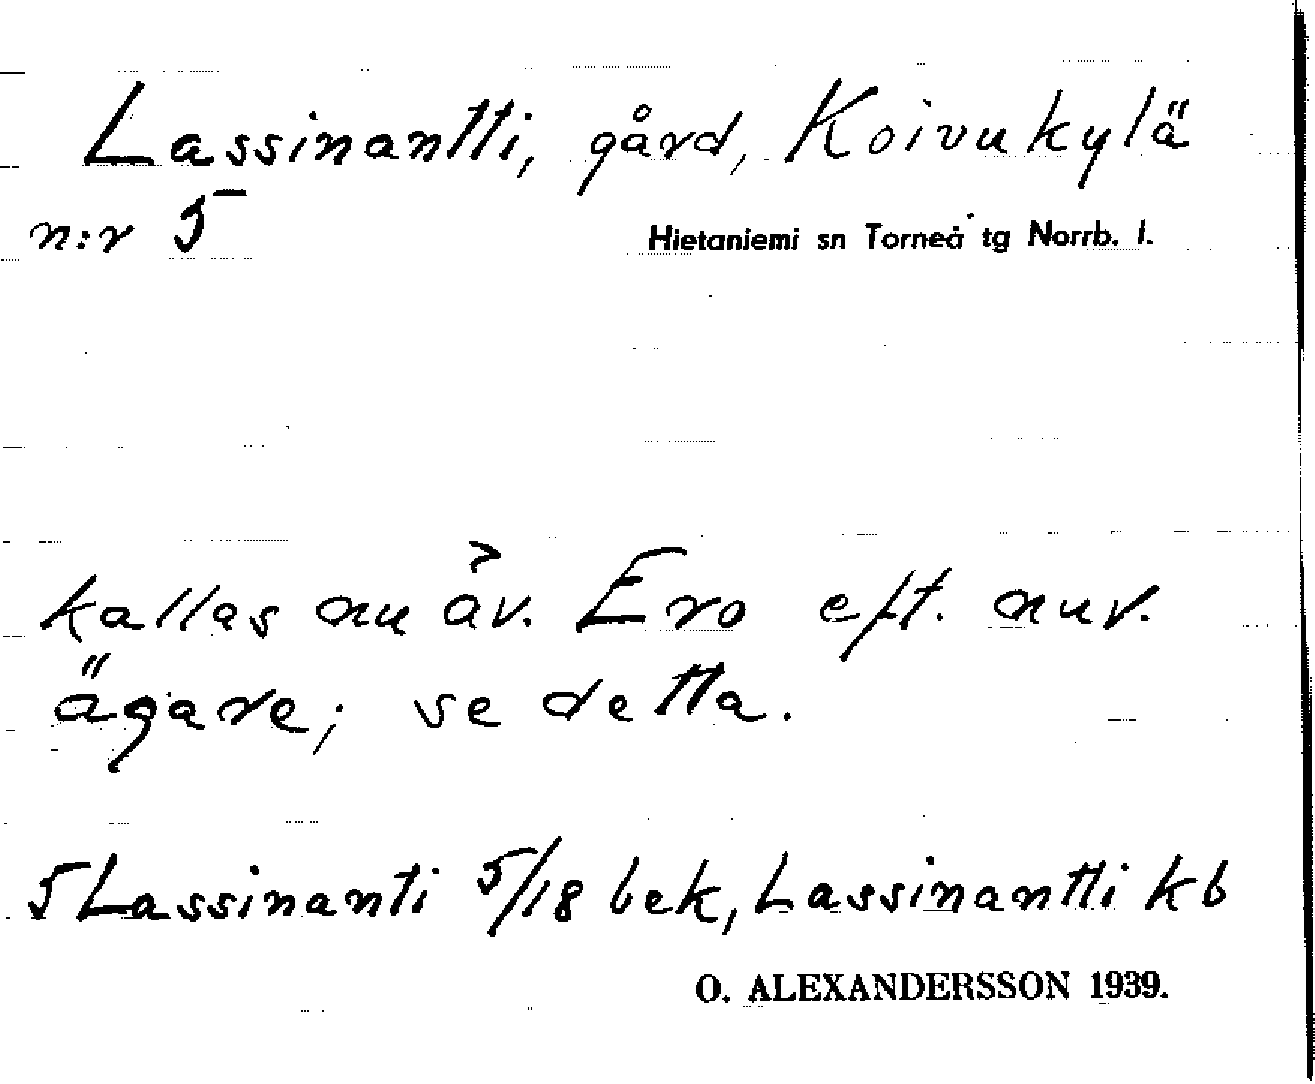 Lassinantti, gård, Koivukylä
n:r 5
Hietaniemi sn Torneå tg Norrb. l.
kallas nu äv. Ero eft. nuv.
ägare; se detta.
5 Lassinanti 5/18 bek, Lassinantti kb
O. ALEXANDERSSON 1939.